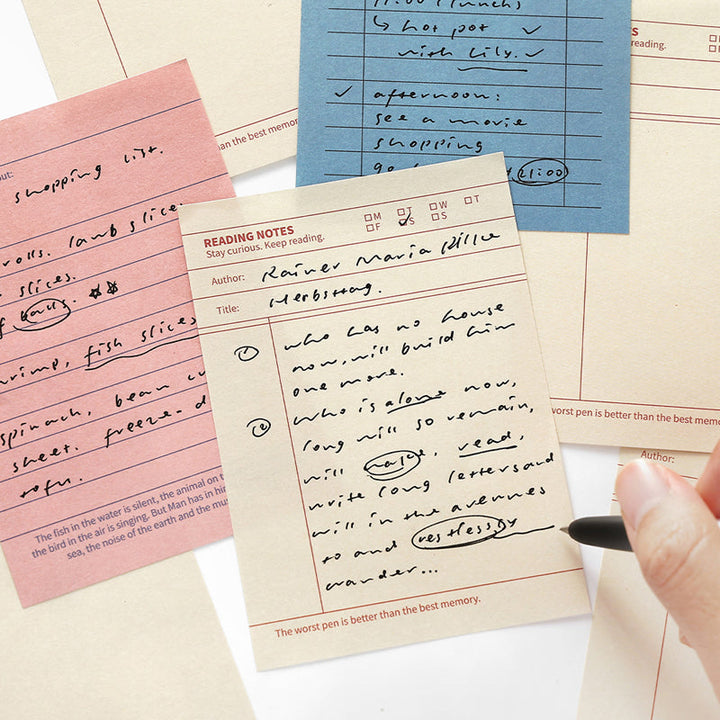 11:00 (lunch)
↳ hot pot ✓
with lily. ✓
✓ afternoon:
see a movie
shopping
21:00
S
reading.
than the best memor
out:
shopping list.
rolls. lamb slices
slices.
f balls.
shrimp, fish slices
spinach, bean
sheet. freeze-d
tofu.
The fish in the water is silent, the animal on t
the bird in the air is singing. But Man has in hi
sea, the noise of the earth and the mu
READING NOTES
Stay curious. Keep reading.
M T W T
F S S
Author: Rainer Maria Rilke
Title: Herbsttag.
① who has no house
now, will build him
one more.
② who is alone now,
long will so remain,
will wake, read,
write long letters and
will in the avenues
to and restlessly
wander...
The worst pen is better than the best memory.
worst pen is better than the best memo
Author: